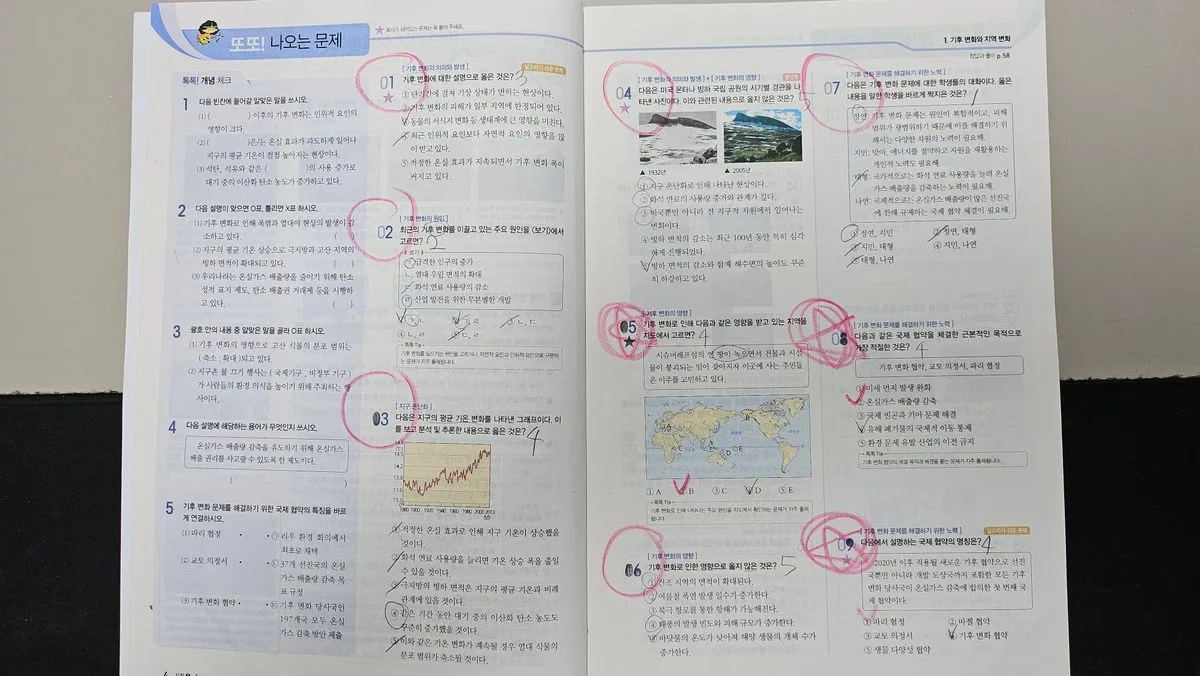 또또! 나오는 문제
★ 표시가 되어있는 문제는 꼭 풀어 주세요.
톡톡! 개념 체크
1 다음 빈칸에 들어갈 알맞은 말을 쓰시오.
(1) ( ) 이후의 기후 변화는 인위적 요인의
영향이 크다.
(2) ( )은/는 온실 효과가 과도하게 일어나
지구의 평균 기온이 점점 높아지는 현상이다.
(3) 석탄, 석유와 같은 ( )의 사용 증가로
대기 중의 이산화 탄소 농도가 증가하고 있다.
2 다음 설명이 맞으면 O표, 틀리면 X표 하시오.
(1) 기후 변화로 인해 폭염과 열대야 현상의 발생이 감
소하고 있다. ( )
(2) 지구의 평균 기온 상승으로 극지방과 고산 지역의
빙하 면적이 확대되고 있다. ( )
(3) 우리나라는 온실가스 배출량을 줄이기 위해 탄소
성적 표지 제도, 탄소 배출권 거래제 등을 시행하
고 있다. ( )
3 괄호 안의 내용 중 알맞은 말을 골라 O표 하시오.
(1) 기후 변화의 영향으로 고산 식물의 분포 범위는
( 축소, 확대 )되고 있다.
(2) 지구촌 불 끄기 행사는 ( 국제기구, 비정부 기구 )
가 사람들의 환경 의식을 높이기 위해 주최하는 행
사이다.
4 다음 설명에 해당하는 용어가 무엇인지 쓰시오.
온실가스 배출량 감축을 유도하기 위해 온실가스
배출 권리를 사고팔 수 있도록 한 제도이다.
( )
5 기후 변화 문제를 해결하기 위한 국제 협약의 특징을 바르
게 연결하시오.
(1) 파리 협정 • • ㉠ 리우 환경 회의에서
최초로 채택
(2) 교토 의정서 • • ㉡ 37개 선진국의 온실
가스 배출량 감축 목
표 규정
(3) 기후 변화 협약 • • ㉢ 기후 변화 당사국인
197개국 모두 온실
가스 감축 방안 제출
[ 기후 변화의 의미와 발생 ]
01 기후 변화에 대한 설명으로 옳은 것은? 3
① 단기간에 걸쳐 기상 상태가 변하는 현상이다.
② 기후 변화의 피해가 일부 지역에 한정되어 있다.
③ 동물의 서식지 변화 등 생태계에 큰 영향을 미친다.
④ 최근 인위적 요인보다 자연적 요인의 영향을 많
이 받고 있다.
⑤ 적정한 온실 효과가 지속되면서 기후 변화 폭이
커지고 있다.
[ 기후 변화의 원인 ]
02 최근의 기후 변화를 이끌고 있는 주요 원인을 <보기>에서
고르면? 2
보기
ㄱ. 급격한 인구의 증가
ㄴ. 열대 우림 면적의 확대
ㄷ. 화석 연료 사용량의 감소
ㄹ. 산업 발전을 위한 무분별한 개발
① ㄱ, ㄴ ② ㄱ, ㄹ ③ ㄴ, ㄷ
④ ㄴ, ㄹ ⑤ ㄷ, ㄹ
• 톡톡 Tip •
기후 변화를 일으키는 원인을 고르거나, 자연적 요인과 인위적 요인으로 구분하
는 문제가 자주 출제됩니다.
[ 지구 온난화 ]
03 다음은 지구의 평균 기온 변화를 나타낸 그래프이다. 이
를 보고 분석 및 추론한 내용으로 옳은 것은? 4
1880 1900 1920 1940 1960 1980 2000 2013
① 적정한 온실 효과로 인해 지구 기온이 상승했을
것이다.
② 화석 연료 사용량을 늘리면 기온 상승 폭을 줄일
수 있을 것이다.
③ 극지방의 빙하 면적은 지구의 평균 기온과 비례
관계에 있을 것이다.
④ 같은 기간 동안 대기 중의 이산화 탄소 농도도
꾸준히 증가했을 것이다.
⑤ 이와 같은 기온 변화가 계속될 경우 열대 식물의
분포 범위가 축소될 것이다.
1. 기후 변화와 지역 변화
정답과 풀이 p.58
[ 기후 변화의 의미와 발생 ] + [ 기후 변화의 영향 ]
04 다음은 미국 몬태나 빙하 국립 공원의 시기별 경관을 나
타낸 사진이다. 이와 관련된 내용으로 옳지 않은 것은? 5
▲ 1932년 ▲ 2005년
① 지구 온난화로 인해 나타난 현상이다.
② 화석 연료의 사용량 증가와 관계가 깊다.
③ 미국뿐만 아니라 전 지구적 차원에서 일어나는
변화이다.
④ 빙하 면적의 감소는 최근 100년 동안 특히 심각
하게 진행되었다.
⑤ 빙하 면적의 감소와 함께 해수면의 높이도 꾸준
히 하강하고 있다.
[ 기후 변화의 영향 ]
05 기후 변화로 인해 다음과 같은 영향을 받고 있는 지역을
지도에서 고르면? 4
시슈머레프섬의 언 땅이 녹으면서 건물과 시설
물이 붕괴되는 일이 잦아지자 이곳에 사는 주민들
은 이주를 고민하고 있다.
① A ② B ③ C ④ D ⑤ E
• 톡톡 Tip •
기후 변화로 인해 나타나는 주요 현상을 지도에서 확인하는 문제가 자주 출제
됩니다.
[ 기후 변화의 영향 ]
06 기후 변화로 인한 영향으로 옳지 않은 것은? 5
① 건조 지역의 면적이 확대된다.
② 여름철 폭염 발생 일수가 증가한다.
③ 북극 항로를 통한 항해가 가능해진다.
④ 태풍의 발생 빈도와 피해 규모가 증가한다.
⑤ 바닷물의 온도가 낮아져 해양 생물의 개체 수가
증가한다.
[ 기후 변화 문제를 해결하기 위한 노력 ]
07 다음은 기후 변화 문제에 대한 학생들의 대화이다. 옳은
내용을 말한 학생을 바르게 짝지은 것은? 1
정연: 기후 변화 문제는 원인이 복합적이고, 피해
범위가 광범위하기 때문에 이를 해결하기 위
해서는 다양한 차원의 노력이 필요해.
지민: 맞아, 에너지를 절약하고 자원을 재활용하는
개인적 노력도 필요해.
태형: 국가적으로는 화석 연료 사용량을 늘려 온실
가스 배출량을 감축하는 노력이 필요해.
나연: 국제적으로는 온실가스 배출량이 많은 선진국
에 한해 규제하는 국제 협약 체결이 필요해.
① 정연, 지민 ② 정연, 태형
③ 지민, 태형 ④ 지민, 나연
⑤ 태형, 나연
[ 기후 변화 문제를 해결하기 위한 노력 ]
08 다음과 같은 국제 협약을 체결한 근본적인 목적으로
가장 적절한 것은? 4
기후 변화 협약, 교토 의정서, 파리 협정
① 미세 먼지 발생 완화
② 온실가스 배출량 감축
③ 국제 빈곤과 기아 문제 해결
④ 유해 폐기물의 국제적 이동 통제
⑤ 환경 문제 유발 산업의 이전 금지
• 톡톡 Tip •
기후 변화 협약의 체결 목적과 배경을 묻는 문제가 자주 출제됩니다.
[ 기후 변화 문제를 해결하기 위한 노력 ]
09 다음에서 설명하는 국제 협약의 명칭은? 4
2020년 이후 적용될 새로운 기후 협약으로 선진
국뿐만 아니라 개발 도상국까지 포함한 모든 기후
변화 당사국이 온실가스 감축에 합의한 첫 번째 국
제 협약이다.
① 파리 협정 ② 바젤 협약
③ 교토 의정서 ④ 기후 변화 협약
⑤ 생물 다양성 협약